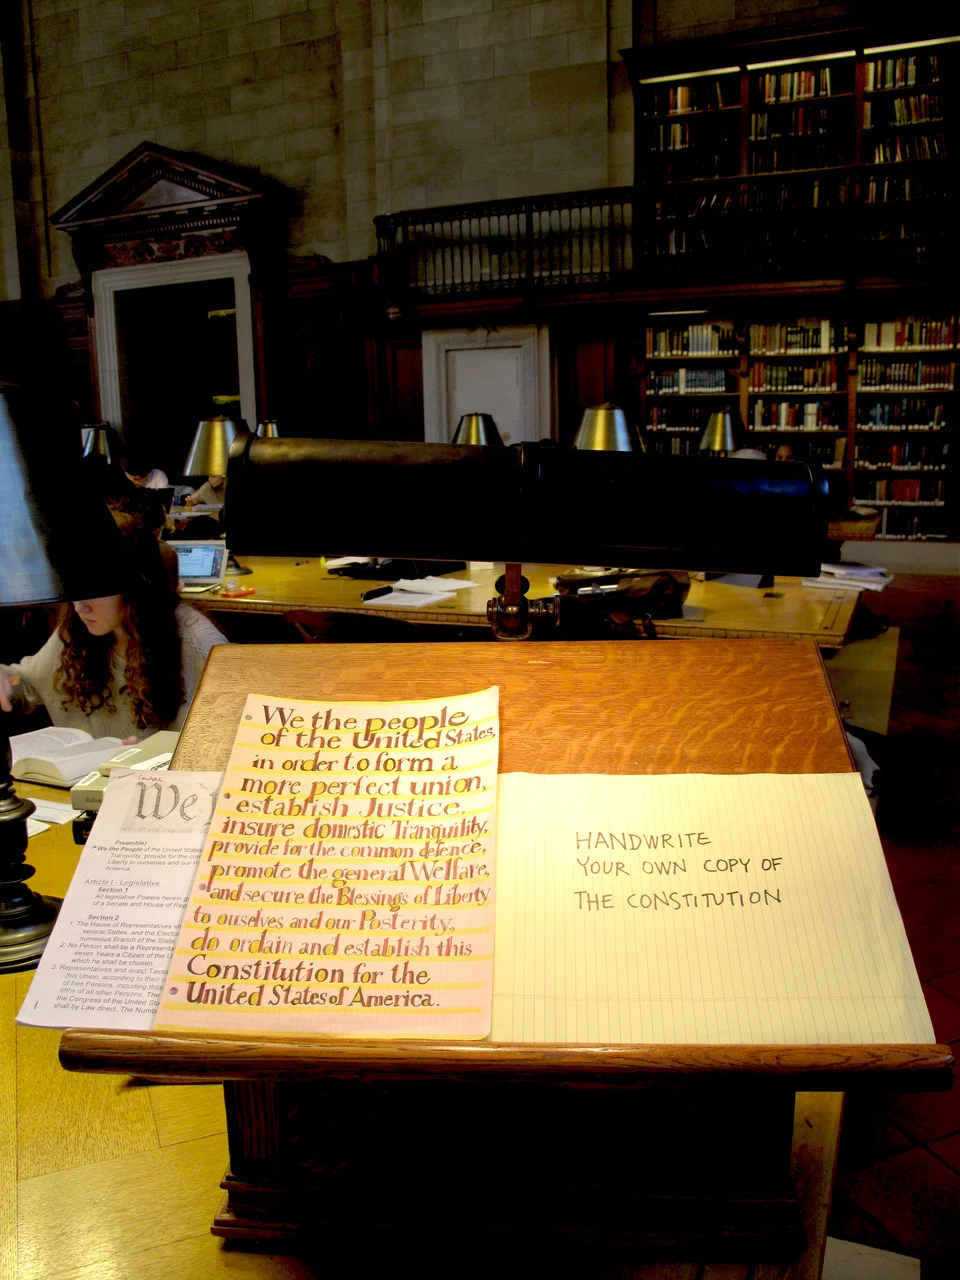 We
Preamble)
We the People of the United States
Tranquility, provide for the com
Liberty to ourselves and our
America
Article I - Legislative
Section 1
All legislative Powers herein
of a Senate and House of Rep
Section 2
1. The House of Representatives
several States, and the Elect
numerous Branch of the State
2. No Person shall be a Representa
seven Years a Citizen of the
which he shall be chosen.
3. Representatives and direct Taxes
this Union, according to their
of free Persons, including those
fifths of all other Persons. The
the Congress of the United St
shall by Law direct. The Numb
We the people
of the United States,
in order to form a
more perfect union,
establish Justice,
insure domestic Tranquility,
provide for the common defence,
promote the general Welfare,
and secure the Blessings of Liberty
to ourselves and our Posterity,
do ordain and establish this
Constitution for the
United States of America.
HANDWRITE
YOUR OWN COPY OF
THE CONSTITUTION